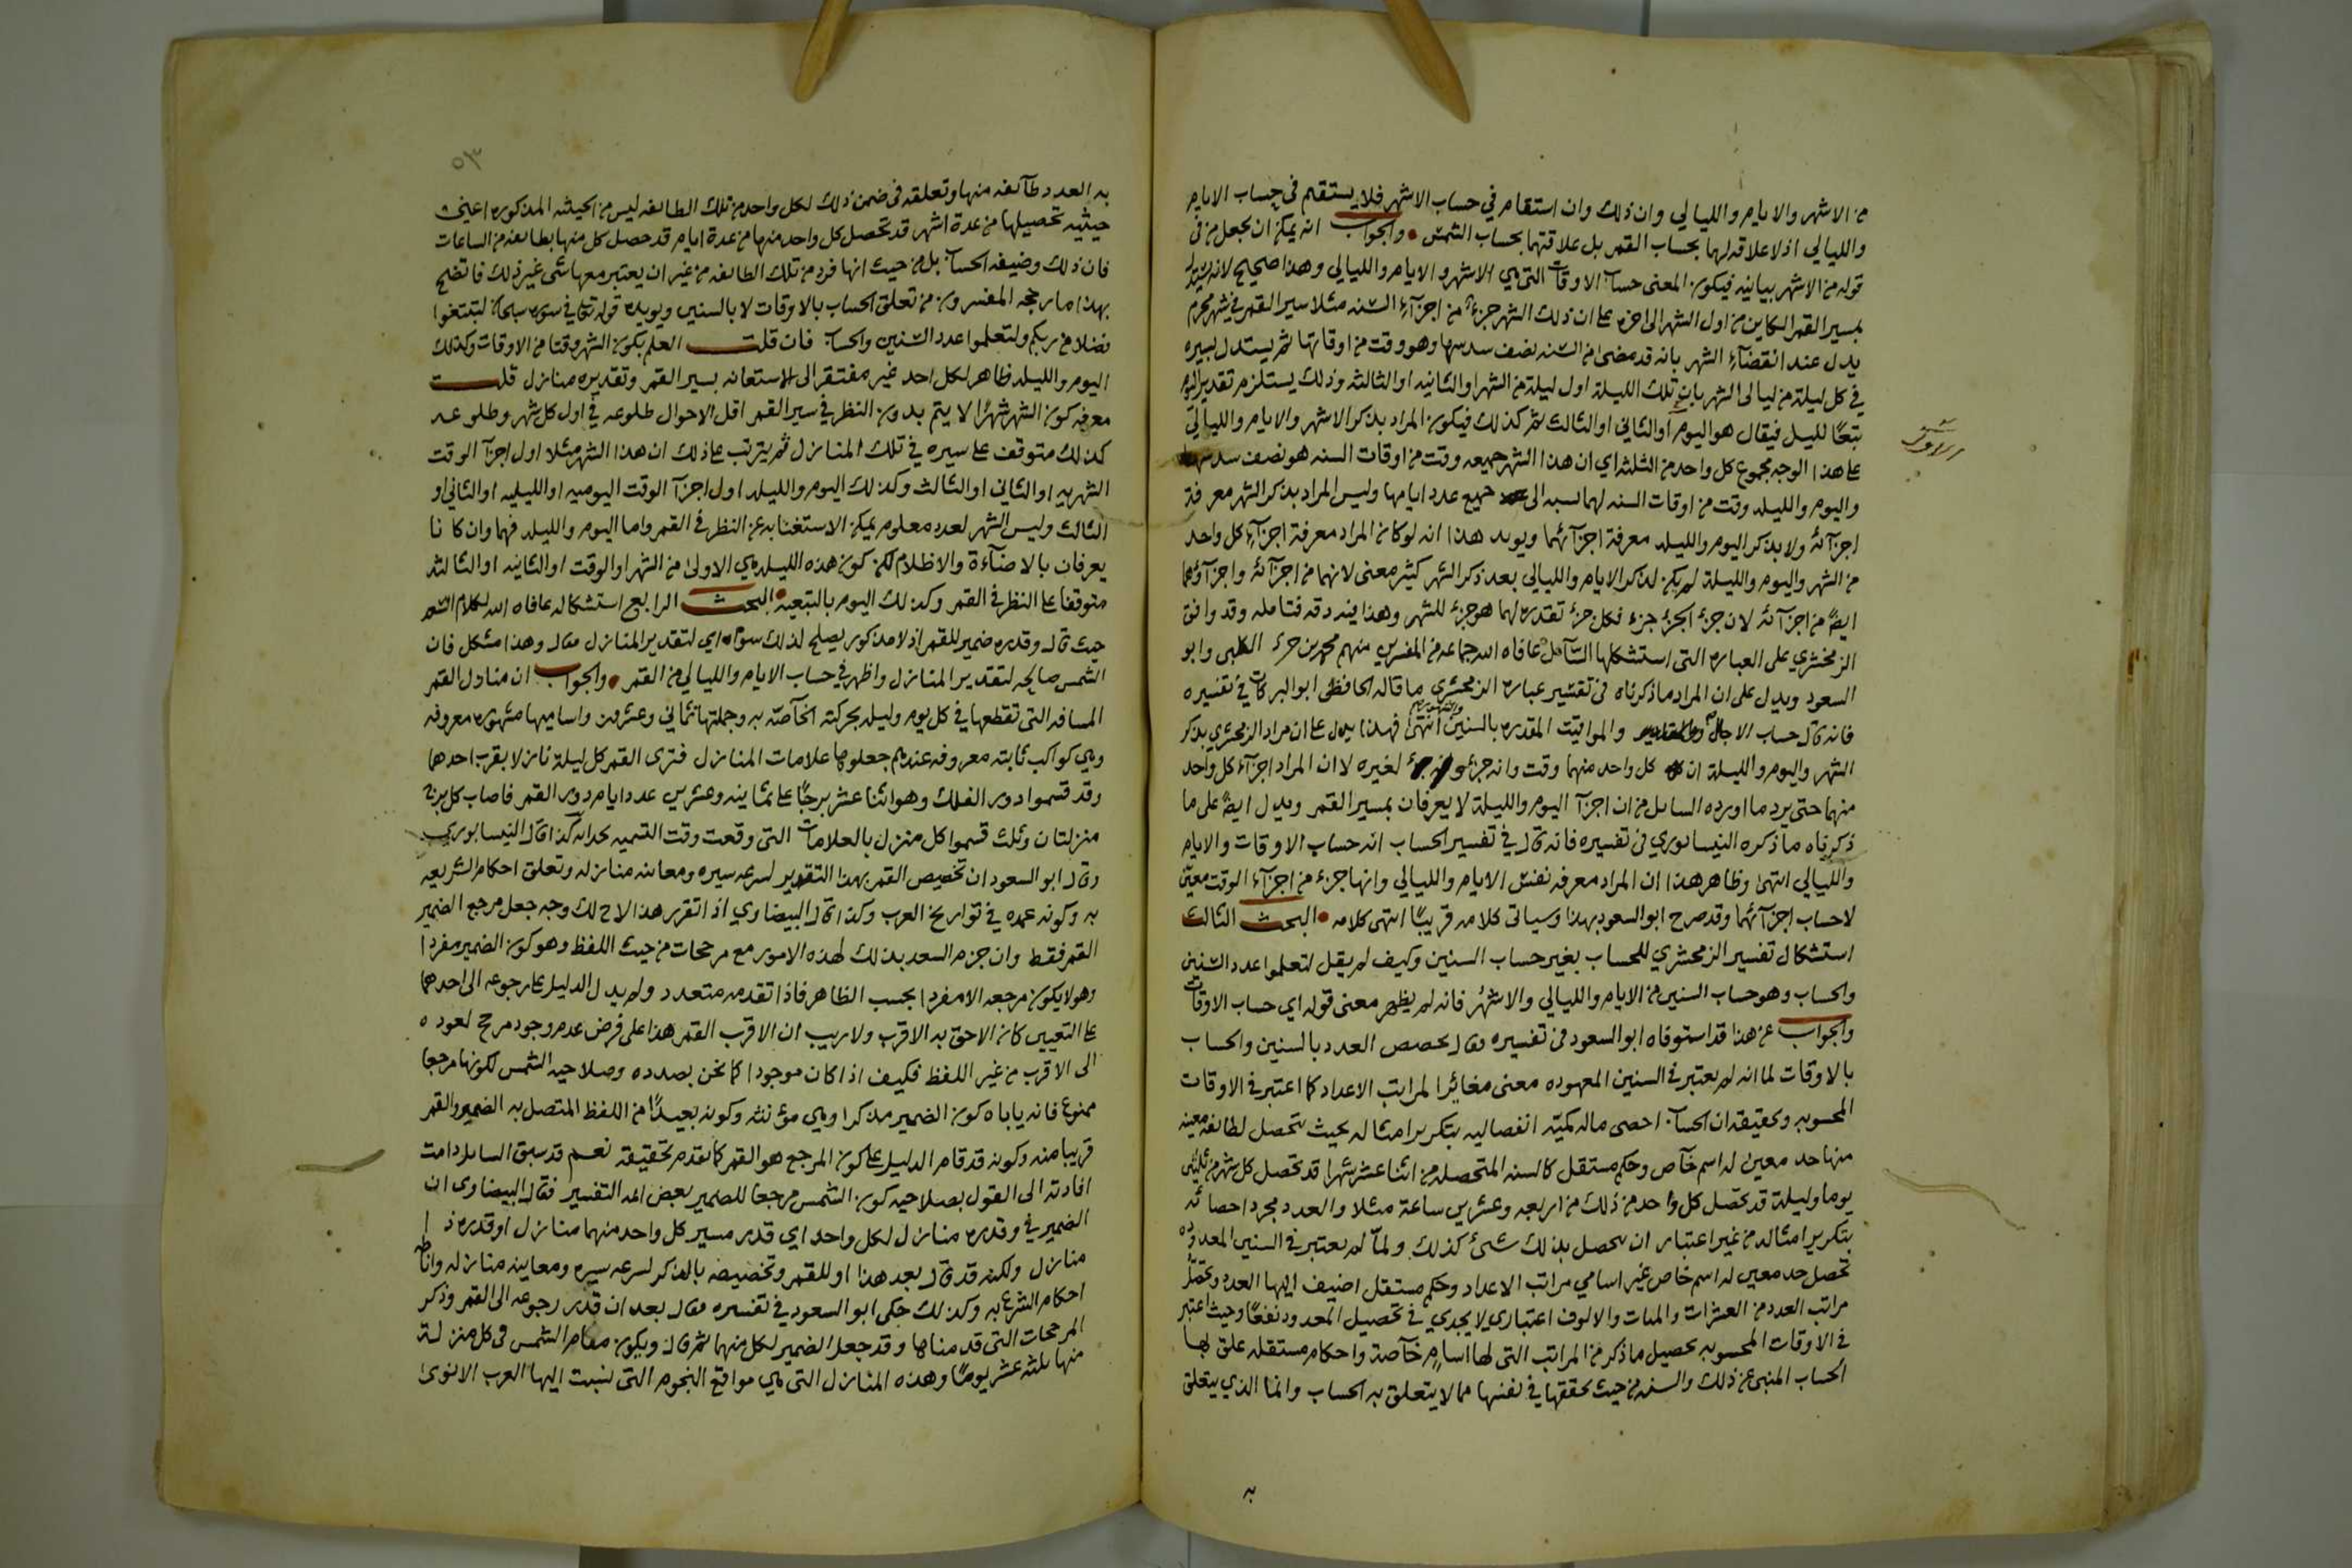 من الاشهر والايام والليالي وان ذلك وان استقام في حساب الاشهر فلا يستقيم في حساب الايام
والليالي اذ لا علاقه لها بحساب القمر بل علاقتهما بحساب الشمس • والجواب انه يمكن ان يجعل من في
قوله من الاشهر بيانيه فيكون المعنى حساب الاوقات التي هي الاشهر والايام والليالي وهذا صحيح لانه
بمسير القمر الكاين من اول الشهر الى اخره على ان ذلك الشهر جزء من اجزآء السنه مثلا سير القمر في شهر محرم
يدل عند انقضآء الشهر بانه قد مضى من السنه نصف سدسها وهو وقت من اوقاتها ثم يستدل بسيره
في كل ليلة من ليالي الشهر بان تلك الليلة اول ليلة من الشهر او الثانيه او الثالثه وذلك يستلزم تقدير اليوم
تبعًا لليل فيقال هو اليوم الاول او الثاني او الثالث ثم كذلك فيكون المراد بذكر الاشهر والايام والليالي
على هذا الوجه مجموع كل واحد من الثلثه اي ان هذا الشهر جميعه وقت من اوقات السنه هو نصف سدسها
واليوم والليله وقت من اوقات السنه لهما نسبه الى جميع عدد ايامها وليس المراد بذكر الشهر معرفة
اجزآئه ولا بذكر اليوم والليله معرفة اجزآئهما ويويد هذا انه لو كان المراد معرفة اجزآء كل واحد
من الشهر واليوم والليلة لم يكن لذكر الايام والليالي بعد ذكر الشهر كثير معنى لانهما من اجزآئه واجزآؤهما
ايضًا من اجزآئه لان جزء الجزء جزء فكل جزء تقدره لهما هو جزء للشهر وهذا فيه دقه فتامله وقد وافق
الزمخشري على العباره التي استشكلها السآئل عافاه الله جماعه من المفسرين منهم محمد بن جزي الكلبي وابو
السعود ويدل على ان المراد ما ذكرناه في تفسير عبارة الزمخشري ما قاله الحافظ ابو البركات في تفسيره
فانه قال حساب الاجال والمواقيت المقدره بالسنين والشهور انتهى فهذا يدل على ان مراد الزمخشري بذكر
الشهر واليوم والليلة ان كل واحد منهما وقت وانه جزء لغيره لا ان المراد اجزآء كل واحد
منهما حتى يرد ما اورده السايل من ان اجزآ اليوم والليلة لا يعرفان بمسير القمر ويدل ايضًا على ما
ذكرناه ما ذكره النيسابوري في تفسيره فانه قال في تفسير الحساب انه حساب الاوقات والايام
والليالي انتهى وظاهر هذا ان المراد معرفه نفس الايام والليالي وانها جزء من اجزآء الوقت معين
لا حساب اجزآئهما وقد صرح ابو السعود بهذا وسياتي كلامه قريبًا انتهى كلامه • البحث الثالث
استشكال تفسير الزمخشري للحساب بغير حساب السنين وكيف لم يقل لتعلموا عدد السنين
والحساب وهو حساب السنين من الايام والليالي والاشهر فانه لم يظهر معنى قوله اي حساب الاوقات
والجواب عن هذا قد استوفاه ابو السعود في تفسيره فقال تخصيص العدد بالسنين والحساب
بالاوقات لما انه لم يعتبر في السنين المعهوده معنى مغائرا لمراتب الاعداد كما اعتبر في الاوقات
المحسوبه وتحقيقه ان الحساب احصى ماله كميّة انفصاليه بتكرير امثاله بحيث تتحصل لطايفه معينه
منها حد معين له اسم خآص وحكم مستقل كالسنه المتحصله من اثنا عشر شهرا قد تحصل كل شهر من ثلثين
يوما وليلة قد تحصل كل واحد من ذلك من اربعه وعشرين ساعة مثلا والعدد مجرد احصائه
بتكرير امثاله من غير اعتبار ان يحصل بذلك شئ كذلك ولمّا لم يعتبر في السنين المعدوده
تحصل حد معين له اسم خاص غير اسامي مراتب الاعداد وحكم مستقل اضيف اليها العدد وتحصّل
مراتب العدد من العشرات والمئات والالوف اعتباري لا يجدي في تحصيل المعدود نفعًا وحيث اعتبر
في الاوقات المحسوبه تحصيل ما ذكر من المراتب التي لها اسامٍ خآصة واحكام مستقله علق بها
الحساب المنبي عن ذلك والسنه من حيث تحققها في نفسها مما لا يتعلق به الحساب وانما الذي يتعلق
به
الاول
٥٣
به العدد طآئفه منها وتعلقه في ضمن ذلك لكل واحد من تلك الطائفه ليس من الحيثيه المذكوره اعني
حيثيه تحصيلها من عدة اشهر قد تحصل كل واحد منها من عدة ايام قد حصل كل منها بطايفه من الساعات
فان ذلك وضيفه الحساب بل من حيث انها فرد من تلك الطائفه من غير ان يعتبر معها شي غير ذلك فاتضح
بهذا ما رجحه المفسرون من تعلق الحساب بالاوقات لا بالسنين ويويده قوله تعالى في سورة سبحان لتبتغوا
فضلا من ربكم ولتعلموا عدد السنين والحساب فان قلت العلم بكون الشهر وقتا من الاوقات وكذلك
اليوم والليله ظاهر لكل احد غير مفتقر الى الاستعانه بسير القمر وتقديره منازل قلت
معرفه كون الشهر شهرًا لا يتم بدون النظر في سير القمر اقل الاحوال طلوعه في اول كل شهر وطلوعه
كذلك متوقف على سيره في تلك المنازل ثم يترتب على ذلك ان هذا الشهر مثلا اول اجزآ الوقت
الشهريه او الثاني او الثالث وكذلك اليوم والليله اول اجزآ الوقت اليوميه او الليليه او الثاني او
الثالث وليس الشهر لعدد معلوم يمكن الاستغنا به عن النظر في القمر واما اليوم والليله فهما وان كانا
يعرفان بالاضآءة والاظلام لكن كون هذه الليله هي الاولى من الشهر او الوقت او الثانيه او الثالثه
متوقفا على النظر في القمر وكذلك اليوم بالتبعيه • البحث الرابع استشكاله عافاه الله لكلام السعد
حيث قال وقدره ضمير للقمر اذ لا مذكور يصلح لذلك سواه اي لتقدير المنازل فقال وهذا مشكل فان
الشمس صالحه لتقدير المنازل واظهر في حساب الايام والليالي من القمر • والجواب ان منازل القمر
المسافه التي تقطعها في كل يوم وليله بحركته الخآصّه به وجملتها ثماني وعشرون واساميها مشهوره معروفه
وهي كواكب ثابته معروفه عندهم جعلوها علامات المنازل فترى القمر كل ليلة نازلا بقرب احدهما
وقد قسموا دور الفلك وهو اثنا عشر برجًا على ثمانيه وعشرين عدد ايام دور القمر فاصاب كل برج
منزلتان وثلث قسموا كل منزل بالعلامات التي وقعت وقت التسميه بحذائه كذا قال النيسابوري
وقال ابو السعود ان تخصيص القمر بهذا التقدير لسرعه سيره ومعاينه منازله وتعلق احكام الشريعه
به وكونه عمده في تواريخ العرب وكذا قال البيضاوي اذا تقرر هذا لاح لك وجه جعل مرجع الضمير
القمر فقط وان جزم السعد بذلك لهذه الامور مع مرجحات من حيث اللفظ وهو كون الضمير مفردا
وهو لا يكون مرجعه الا مفردا بحسب الظاهر فاذا تقدمه متعدد ولم يدل الدليل على رجوعه الى احدهما
على التعيين كان الاحق به الاقرب ولا ريب ان الاقرب القمر هذا على فرض عدم وجود مرجح لعوده
الى الاقرب من غير اللفظ فكيف اذا كان موجودا كما نحن بصدده وصلاحيه الشمس لكونها مرجعا
ممنوع فانه ياباه كون الضمير مذكرا وهي مؤنثه وكونه بعيدًا من اللفظ المتصل به الضمير والقمر
قريبا منه وكونه قد قام الدليل على كون المرجع هو القمر كما تقدم تحقيقه نعم قد سبق السايل دامت
افادته الى القول بصلاحيه كون الشمس مرجعا للضمير بعض ائمه التفسير فقال البيضاوى ان
الضمير في وقدره منازل لكل واحد اي قدر مسير كل واحد منهما منازل او قدره ذا
منازل ولكنه قد قال بعد هذا او للقمر وتخصيصه بالذكر لسرعه سيره ومعاينه منازله واناطة
احكام الشرع به وكذلك حكى ابو السعود في تفسيره فقال بعد ان قدر رجوعه الى القمر وذكر
المرجحات التي قدمناها وقد جعل الضمير لكل منهما ثم قال ويكون مقام الشمس في كل منزلة
منها ثلثه عشر يومًا وهذه المنازل التي هي مواقع النجوم التي نسبت اليها العرب الانوى